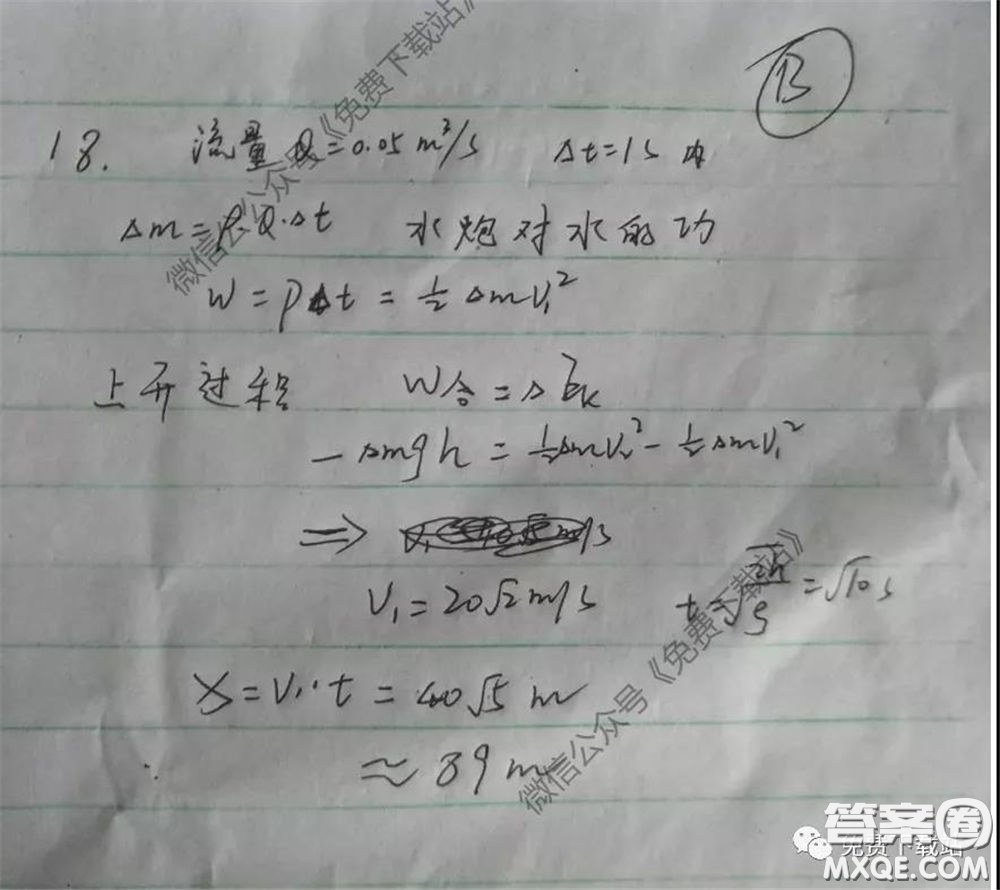 B
18. 流量 Q=0.05 m³/s Δt=1s 内
Δm=ρ·Q·Δt 水炮对水的功
W=PΔt=½Δmv₁²
上升过程 W合=ΔEk
-Δmgh=½Δmv₂²-½Δmv₁²
⇒
V₁=20√2m/s t=√2h/g=√10 s
X=V₁·t=40√5 m
≈89 m
微信公众号《免费下载站》
微信公众号《免费下载站》
答案圈
免费下载站
MXQE.COM